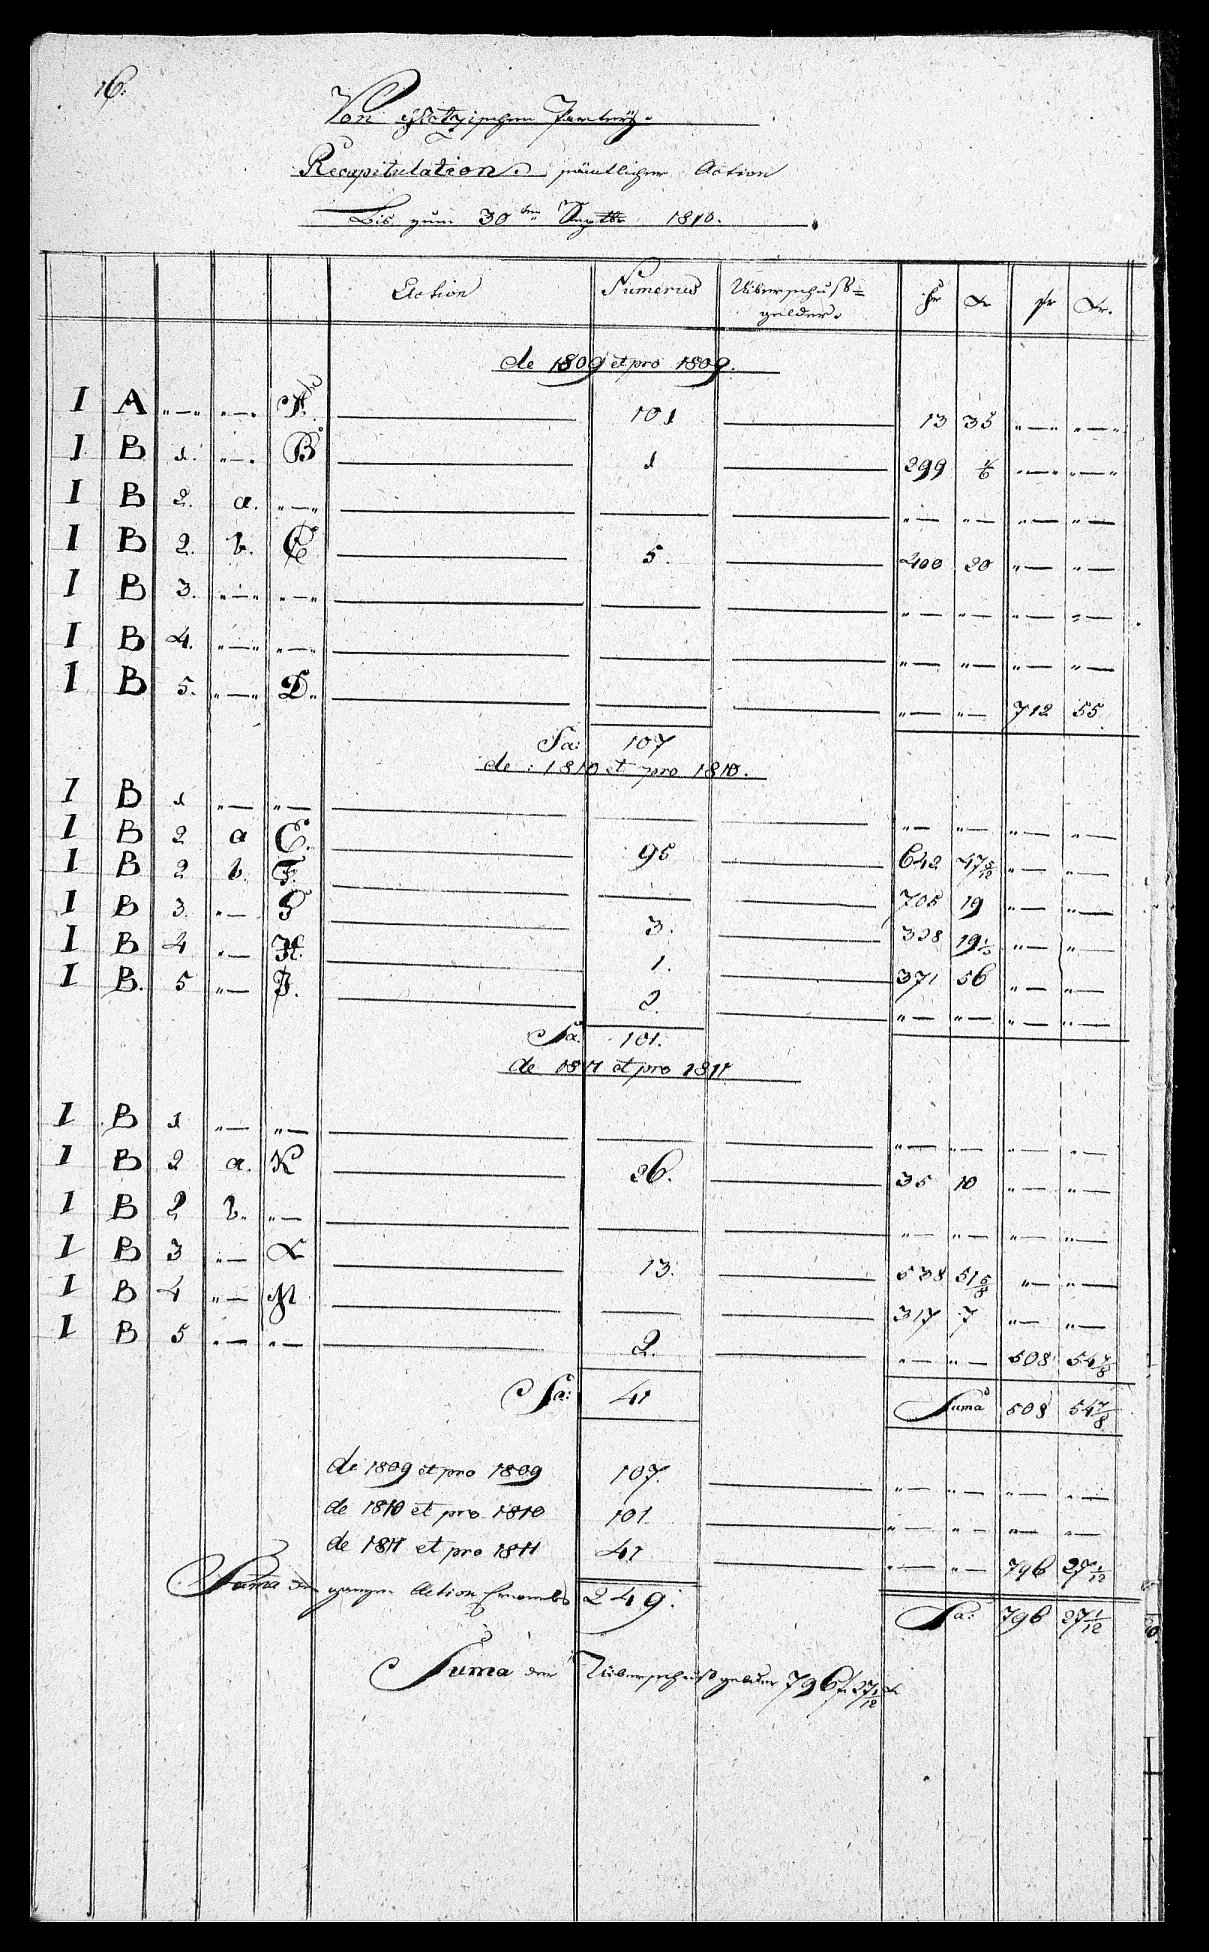 16:
Von
Recapitulation sämtlicher Action
Bis zum 30ten Septbr 1810.
Action Numerus Ueberschuß= gelder. fr Xr fr Xr.
de 1809 et pro 1809.
I A „—„ „—„ A. 101 13 35 „—„ „—„
I B 1. „—„ B 1 299 „—„ „—„
I B 2. a. „—„ „— „— „— „—
I B 2. b. C 5. 400 20 „— „—
I B 3. „—„ „—„ „— „— „— „—
I B 4. „—„ „—„ „— „— „— „—
I B 5. „—„ D. „— „— 712 55
Sa: 107
de: 1810 et pro 1810.
I B 1 „— „— „— „— „— „—
I B 2 a E. 95 642 „— „—
I B 2 b. F. 705 19 „— „—
I B 3. „— G 3. 328 „— „—
I B 4 „— H. 1. 371 56 „— „—
I B. 5 „— I. 2. „— „— „— „—
Sa. 101.
de 1811 et pro 1811
I B 1 „— „— „— „— „— „—
I B 2 a. K 26. 35 10 „— „—
I B 2 b. „— „— „— „— „—
I B 3 „— L 13. 538 51 5/8 „— „—
I B 4 „— M 317 7 „— „—
I B 5 „— „— 2. „— „— 508 54 7/8
Sa: 41 Suma 508 54 7/8
de 1809 et pro 1809 107. „— „— „— „—
de 1810 et pro 1810 101. „— „— „— „—
de 1811 et pro 1811 41 „— „— 796 27 1/12
Suma der ganzen Action 249. Sa: 796 27 1/12
Suma der Ueberschußgelder 796 f 27 1/12 Xr